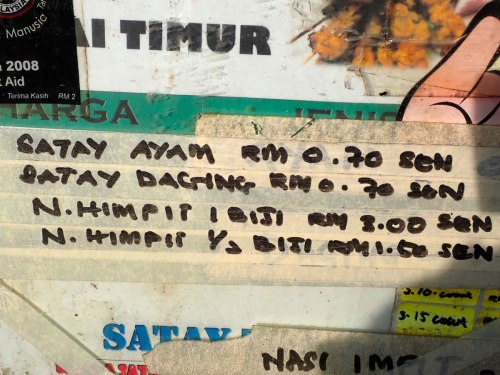 MALAYSIA
Manusia
2008
Aid
Terima Kasih RM 2
AI TIMUR
HARGA JENIS
SATAY AYAM RM 0.70 SEN
SATAY DAGING RM 0.70 SEN
N.HIMPIT 1 BIJI RM 3.00 SEN
N.HIMPIT 1/2 BIJI RM 1.50 SEN
3.15
SATAY
NASI IMPIT